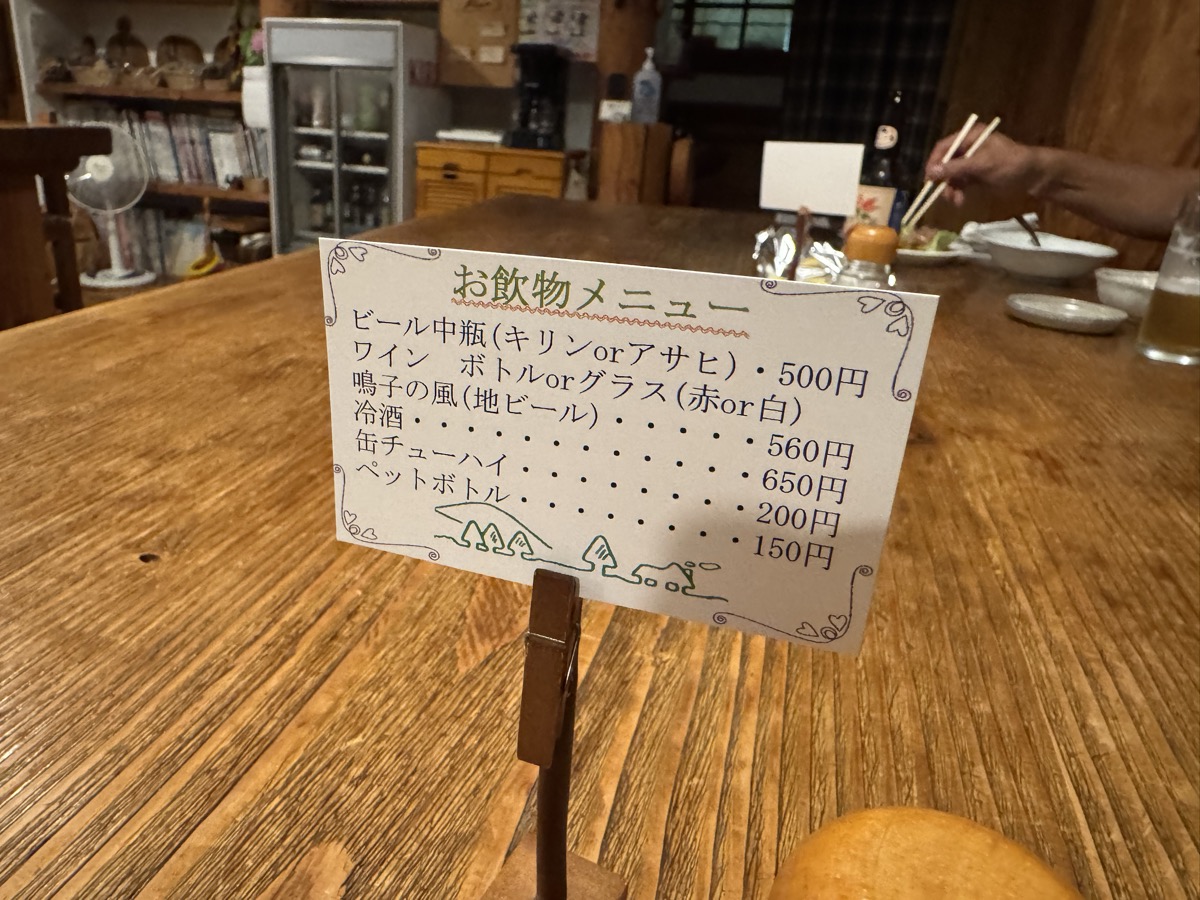 お飲物メニュー
ビール中瓶(キリンorアサヒ)・500円
ワイン　ボトルorグラス(赤or白)
鳴子の風(地ビール)・・・・・560円
冷酒・・・・・・・・・・・・650円
缶チューハイ・・・・・・・・200円
ペットボトル・・・・・・・・150円